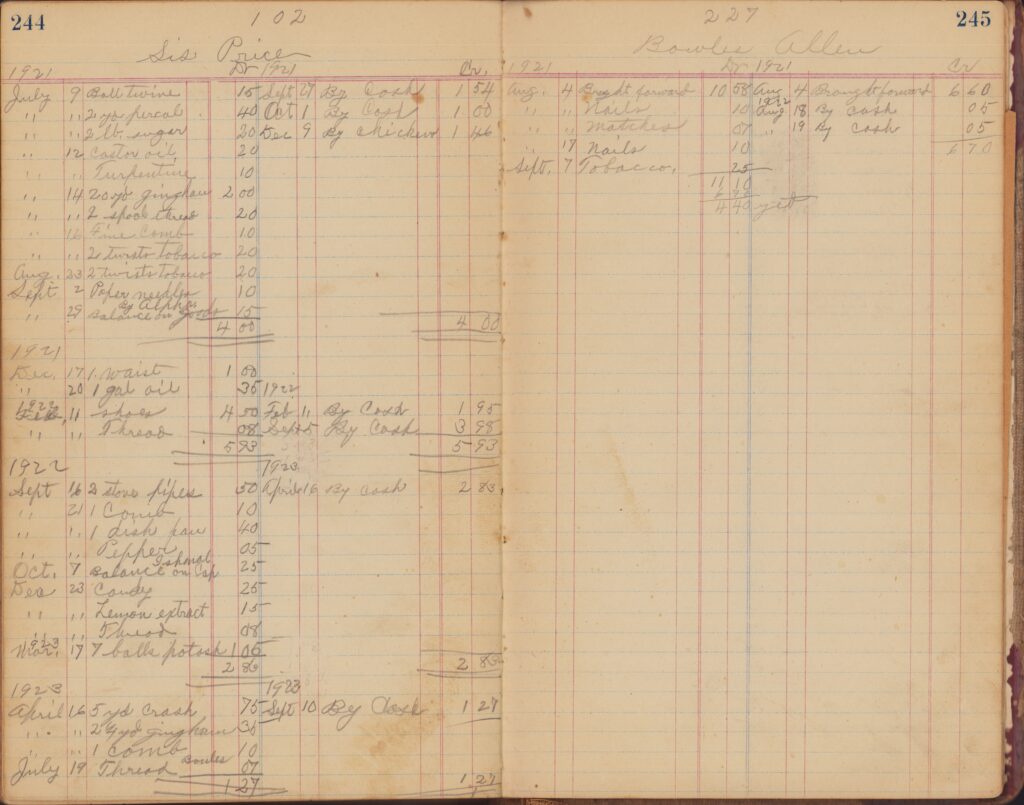 244
102
Sis Price
1921 Dr 1921 Cr.
July 9 Ball twine 15 Sept 27 By Cash 1 54
" " 2 yd percal 40 Oct 1 By Cash 1 00
" " 2 lb. sugar 20 Dec 9 By chickens 1 46
" 12 Castor oil, 20
" " Turpentine 10
" 14 20 yd gingham 2 00
" " 2 spool thread 20
" 16 Fine Comb 10
" " 2 twists tobacco 20
Aug. 23 2 twists tobacco 20
Sept 2 Paper needles 10
By Alpha
" 29 Balance on goods 15
4 00 4 00
1921
Dec. 17 1 waist 1 00
" 20 1 gal oil 35 1922
1922
Feb. 11 shoes 4 50 Feb 11 By Cash 1 95
" " Thread 08 Sept 5 By Cash 3 98
5 93 5 93
1922 1923
Sept 16 2 stove pipes 50 April 16 By Cash 2 83
" 21 1 Comb 10
" " 1 dish pan 40
" " Pepper 05
Ishmal
Oct. 7 Balance on Cap 25
Dec 23 Candy 25
" " Lemon extract 15
" " Thread 08
1923
Mar. 17 7 balls potash 1 05
2 83 2 83
1923 1923
April 16 5 yd crash 75 Sept 10 By Cash 1 27
" " gingham 35
" " 1 Comb 10
July 19 Thread Bowles 07
1 27 1 27
245
227
Bowles Allen
1921 Dr 1921 Cr
Aug. 4 Brought forward 10 58 Aug 4 Brought forward 6 60
1922
" " Nails 10 Aug 18 By Cash 05
" " Matches 07 " 19 By Cash 05
" 17 Nails 10 6 70
Sept. 7 Tobacco. 25
11 10
6 70
4 40 yet